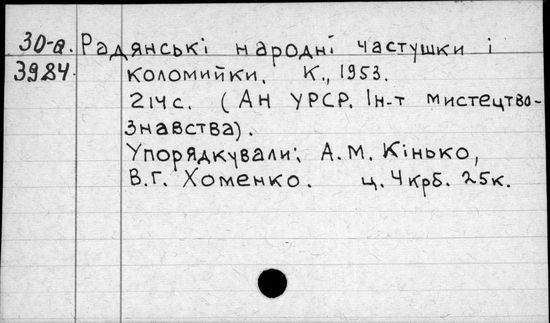 30-а. Радянські народні частушки і
3984. коломийки. К., 1953.
214 с. (АН УРСР. Ін-т мистецтво-
знавства).
Упорядкували: А.М. Кінько,
В.Г. Хоменко. ц. 4 крб. 25к.